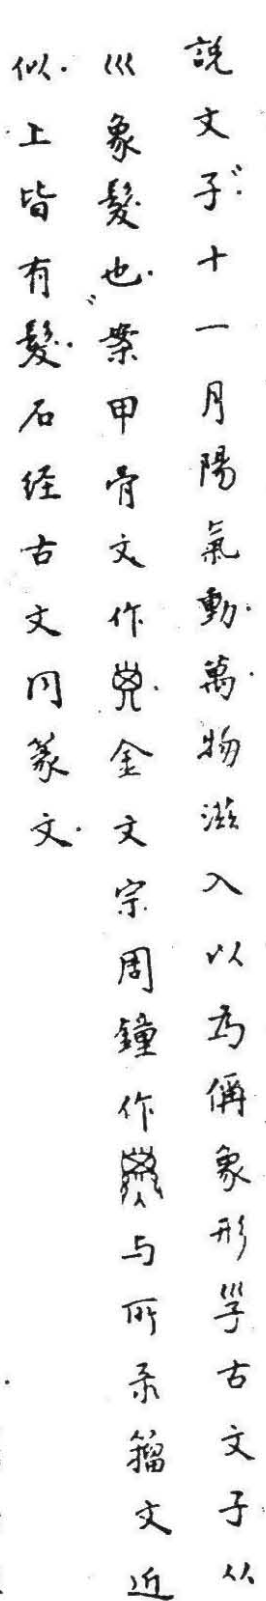 說文子十一月陽氣動萬物滋入以為偁象形㜽古文子从
巛象髮也案甲骨文作金文宗周鐘作与所录籀文近
似上皆有髮石经古文同篆文